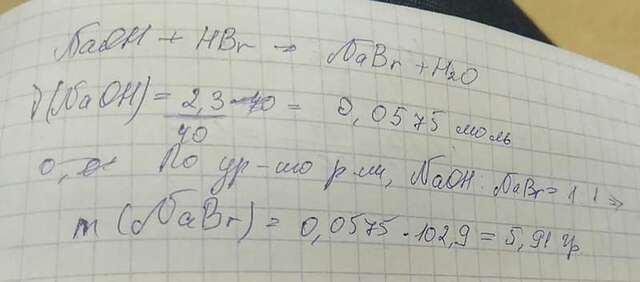 NaOH + HBr → NaBr + H2O
ν(NaOH) = 2,3 / 40 = 0,0575 моль
По ур-ию р-ии, NaOH : NaBr = 1 : 1 ⇒
m(NaBr) = 0,0575 · 102,9 = 5,91 гр